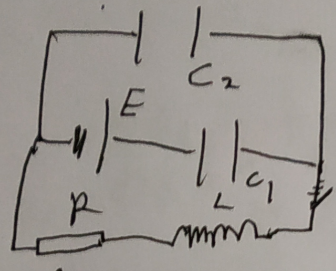 C2
E
C1
R
L